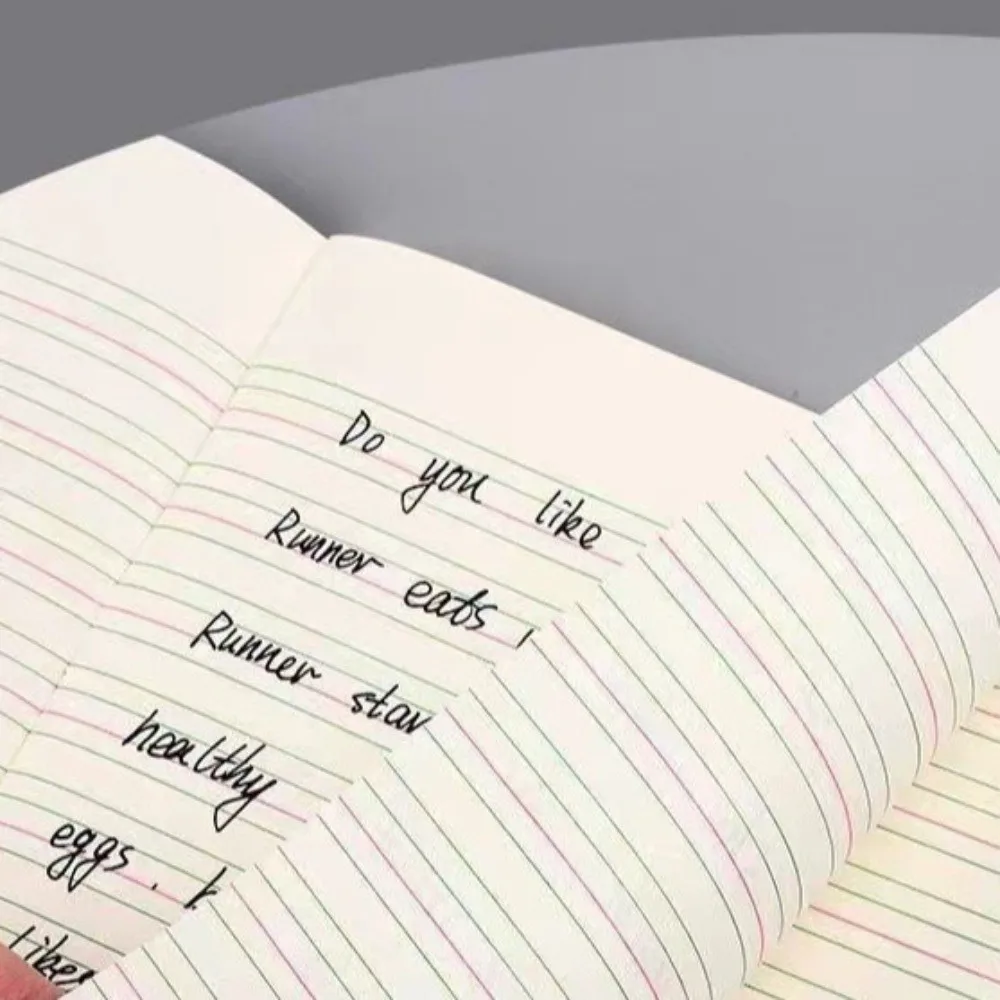 Do you like
Runner eats
Runner star
healthy
eggs.
likes